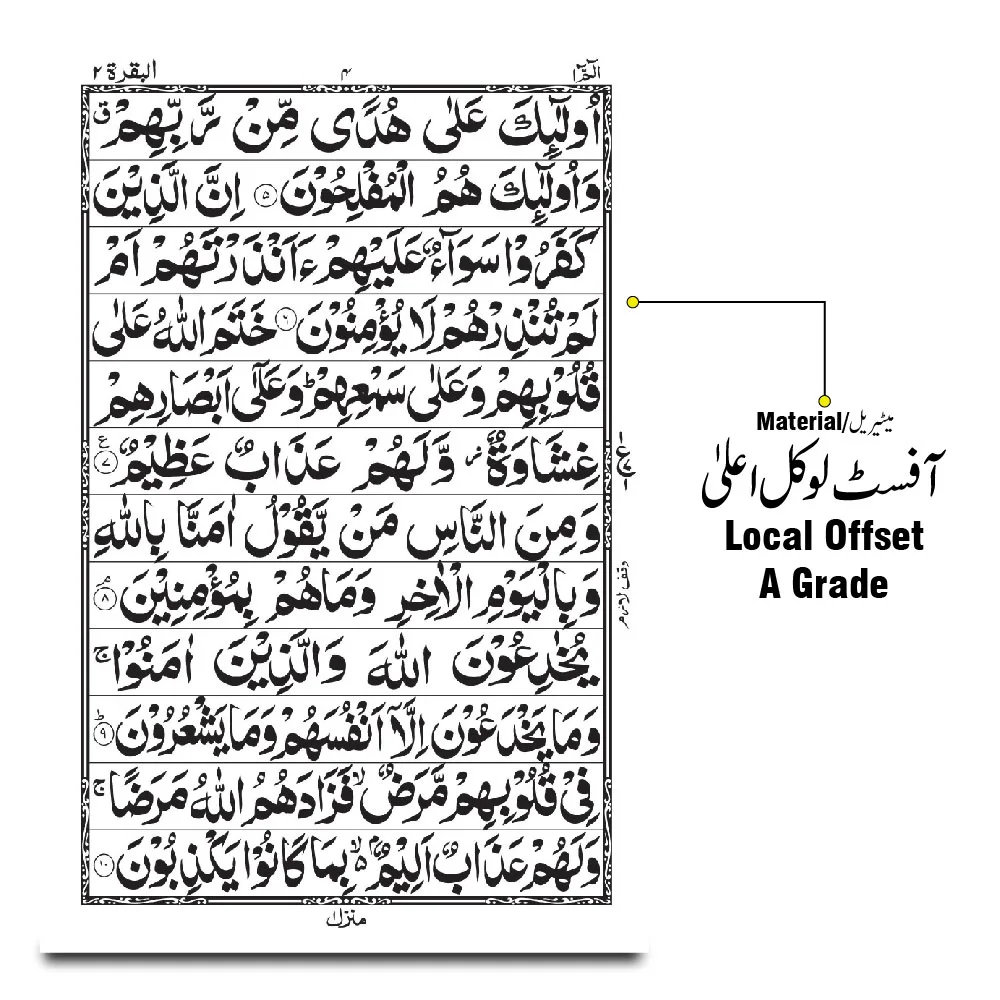 الٓمّٓ ۱
۴
البقرة ۲
اُولٰٓئِكَ عَلٰى هُدًى مِّنْ رَّبِّهِمْ ۗ
وَاُولٰٓئِكَ هُمُ الْمُفْلِحُوْنَ ۵ اِنَّ الَّذِيْنَ
كَفَرُوْا سَوَآءٌ عَلَيْهِمْ ءَاَنْذَرْتَهُمْ اَمْ
لَمْ تُنْذِرْهُمْ لَا يُؤْمِنُوْنَ ۶ خَتَمَ اللّٰهُ عَلٰى
قُلُوْبِهِمْ وَعَلٰى سَمْعِهِمْ ؕ وَعَلٰٓى اَبْصَارِهِمْ
غِشَاوَةٌ ز وَّلَهُمْ عَذَابٌ عَظِيْمٌ ۷ ع
وَمِنَ النَّاسِ مَنْ يَّقُوْلُ اٰمَنَّا بِاللّٰهِ
وَبِالْيَوْمِ الْاٰخِرِ وَمَا هُمْ بِمُؤْمِنِيْنَ ۘ ۸
يُخٰدِعُوْنَ اللّٰهَ وَالَّذِيْنَ اٰمَنُوْا ۚ
وَمَا يَخْدَعُوْنَ اِلَّاۤ اَنْفُسَهُمْ وَمَا يَشْعُرُوْنَ ؕ ۹
فِيْ قُلُوْبِهِمْ مَّرَضٌ ۙ فَزَادَهُمُ اللّٰهُ مَرَضًا ۚ
وَلَهُمْ عَذَابٌ اَلِيْمٌ ۢ ۙ۬ بِمَا كَانُوْا يَكْذِبُوْنَ ۱۰
وقف لازم
منزل ۱
Material/میٹیریل
آفسٹ لوکل اعلیٰ
Local Offset
A Grade